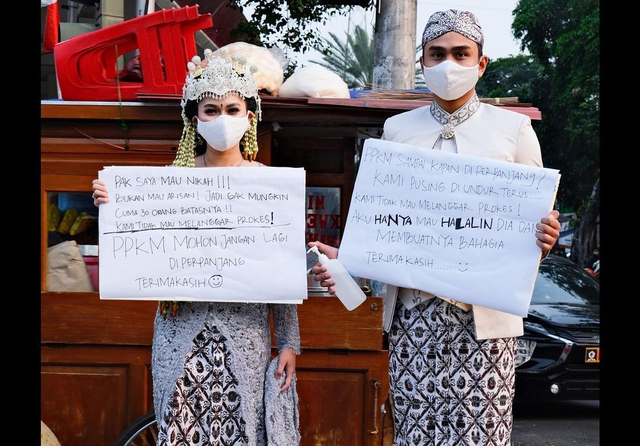 PAK SAYA MAU NIKAH!!!
BUKAN MAU ARISAN! JADI GAK MUNGKIN
CUMA 30 ORANG BATASNYA!!
KAMI TIDAK MAU MELANGGAR PROKES!
PPKM MOHON JANGAN LAGI
DIPERPANJANG
TERIMAKASIH
PPKM SAMBAI KAPAN DI PERPANJANG?
KAMI PUSING DI UNDUR TERUS....
KAMI TIDAK MAU MELANGGAR PROKES!
AKU HANYA MAU HALALIN DIA DAN
MEMBUATNYA BAHAGIA
TERIMAKASIH......